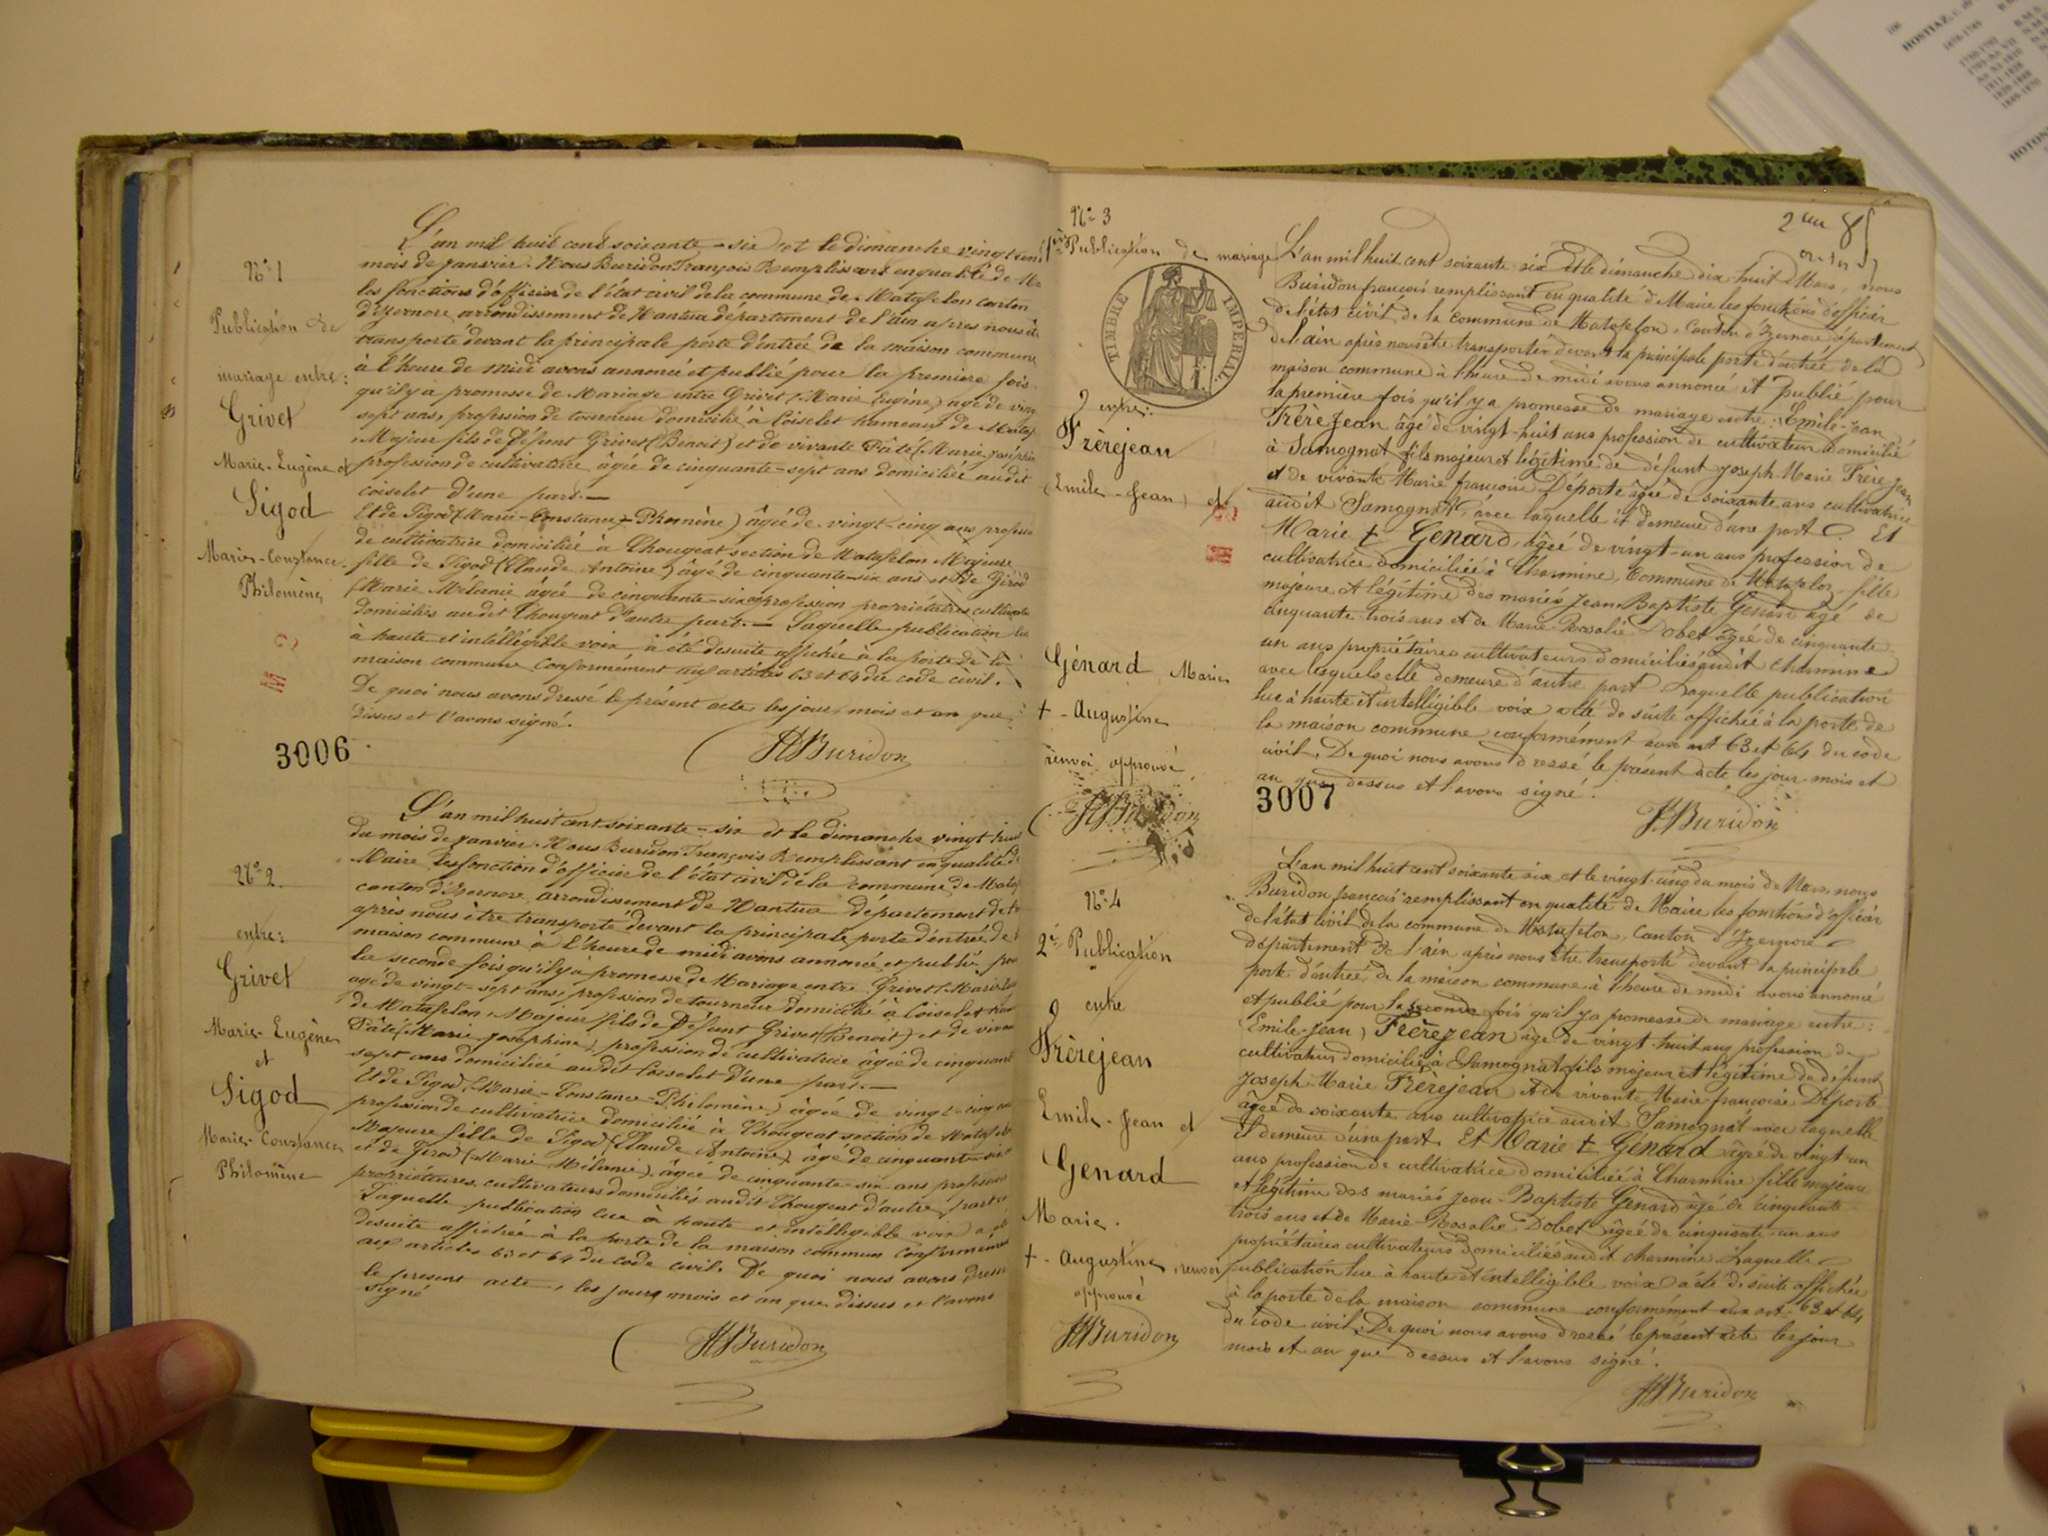 N° 1
Publication de
mariage entre:
Grivet
Marie-Eugène et
Sigod
Marie-Constance
Philomène
3006
L'an mil huit cent soixante-six et le dimanche vingt
mois de janvier. Nous Buridon François Remplissant en qualité de
les fonctions d'officier de l'état civil de la commune de Matafelon canton
d'Izernore, arrondissement de Nantua département de l'ain apres nous
transporté devant la principale porte d'entrée de la maison commune
à l'heure de midi avons annoncé et publié pour la premiere fois
qu'il y à promesse de Mariage entre Grivet (Marie Eugène) agé de
sept ans, profession de tourneur domicilié à Coiselet hameau de
Majeur fils de Défunt Grivet (Benoit) et de vivante Pâté (Marie
profession de cultivatrice âgée de cinquante-sept ans domiciliée au dit
coiselet d'une part.—
Et de Sigod (Marie-Constance-Philomène) âgée de vingt-cinq ans
de cultivatrice domiciliée à Chougeat section de Matafelon Majeure
fille de Sigod (Claude Antoine) âgé de cinquante-six ans et de Girod
(Marie Mélanie âgée de cinquante-six profession propriétaires
domiciliés au dit Chougeat d'autre part.— Laquelle publication
à haute et intelligible voix, à été desuite affichée à la porte de la
maison commune Conformement aux articles 63 et 64 du code civil.
De quoi nous avons dressé le présent acte les jour, mois et an que
dessus et l'avons signé.
Buridon
N° 2.
entre:
Grivet
Marie-Eugène
et
Sigod
Marie-Constance
Philomène
L'an mil huit cent soixante-six et le dimanche vingt-huit
du mois de janvier. Nous Buridon François Remplissant en qualité
Maire les fonction d'officier de l'état civil de la commune de
canton d'Izernore, arrondissement de Nantua département de
après nous être transporté devant la principale porte d'entrée de
maison commune à l'heure de midi avons annoncé et publié
la seconde fois qu'il y à promesse de Mariage entre Grivet
agé de vingt-sept ans, profession de tourneur domicilié à Coiselet
de Matafelon Majeur fils de Défunt Grivet (Benoit) et de
Pâté (Marie Josephine), profession de cultivatrice âgée de
sept ans domiciliée au dit Coiselet d'une part.—
Et de Sigod (Marie-Constance-Philomène) âgée de vingt-cinq
profession de cultivatrice domiciliée à Chougeat section de
Majeure fille de Sigod (Claude Antoine) âgé de cinquante-six
et de Girod (Marie Mélanie) âgée de cinquante-six ans
propriétaires cultivateurs domiciliés au dit Chougeat d'autre part
Laquelle publication lue à haute et intelligible voix a
desuite affichée à la porte de la maison commune
aux articles 63 et 64 du code civil. De quoi nous avons
le present acte, les jour, mois et an que dissus et l'avons
signé
Buridon
N° 3
1ère Publication de mariage
TIMBRE IMPÉRIAL
entre:
Frèrejean
(Emile-Jean) et
Génard Marie
+ - Augustine
renvoi approuvé
Buridon
L'an mil huit cent soixante six et le dimanche dix-huit Mars, nous
Buridon françois remplissant en qualité de Maire les fonctions d'officier
de l'état civil de la commune de Matafelon, Canton d'Izernore département
de l'ain après nous être transporté devant la principale porte d'entrée de la
maison commune à l'heure de midi avons annoncé et publié pour
la première fois qu'il y a promesse de mariage entre: Emile-Jean
Frèrejean âgé de vingt-huit ans profession de cultivateur domicilié
à Samognat fils majeur et légitime de défunt Joseph-Marie Frèrejean
et de vivante Marie françoise Déporte âgée de soixante ans cultivatrice
audit Samognat, avec laquelle il demeure d'une part. Et
Marie + Genard, âgée de vingt-un ans profession de
cultivatrice domiciliée à Charmine, Commune de Matafelon, fille
majeure et légitime des mariés Jean-Baptiste Genard âgé de
cinquante trois ans et de Marie-Rosalie Dobet âgée de cinquante-
un ans propriétaires cultivateurs domiciliés audit charmine
avec lesquels elle demeure d'autre part. Laquelle publication
lue à haute et intelligible voix a été de suite affichée à la porte de
la maison commune conformément aux art 63 et 64 du code
civil. De quoi nous avons dressé le présent acte les jour mois et
an que dessus et l'avons signé.
3007
Buridon
N° 4
2e Publication
entre
Frèrejean
Emile-Jean et
Genard
Marie.
+ - Augustine, renvoi
approuvé
Buridon
L'an mil huit cent soixante six et le vingt-cinq du mois de Mars, nous
Buridon françois remplissant en qualité de Maire les fonctions d'officier
de l'état civil de la commune de Matafelon, Canton d'Izernore
département de l'ain après nous être transporté devant la principale
porte d'entrée de la maison commune à l'heure de midi avons annoncé
et publié pour la seconde fois qu'il y a promesse de mariage entre:
(Emile-Jean) Frèrejean âgé de vingt-huit ans profession de
cultivateur domicilié à Samognat fils majeur et légitime du défunt
Joseph-Marie Frèrejean et de vivante Marie-françoise Déporte
âgée de soixante ans cultivatrice audit Samognat avec laquelle
il demeure d'une part. Et Marie + Génard âgée de vingt-un
ans profession de cultivatrice domiciliée à Charmine fille majeure
et légitime des mariés Jean-Baptiste Génard âgé de cinquante
trois ans et de Marie-Rosalie Dobet âgée de cinquante-un ans
propriétaires cultivateurs domiciliés audit charmine Laquelle
publication lue à haute et intelligible voix a été de suite affichée
à la porte de la maison commune conformément aux art. 63 et 64
du code civil. De quoi nous avons dressé le présent acte les jour
mois et an que dessus et l'avons signé.
Buridon
HOSTIAZ,